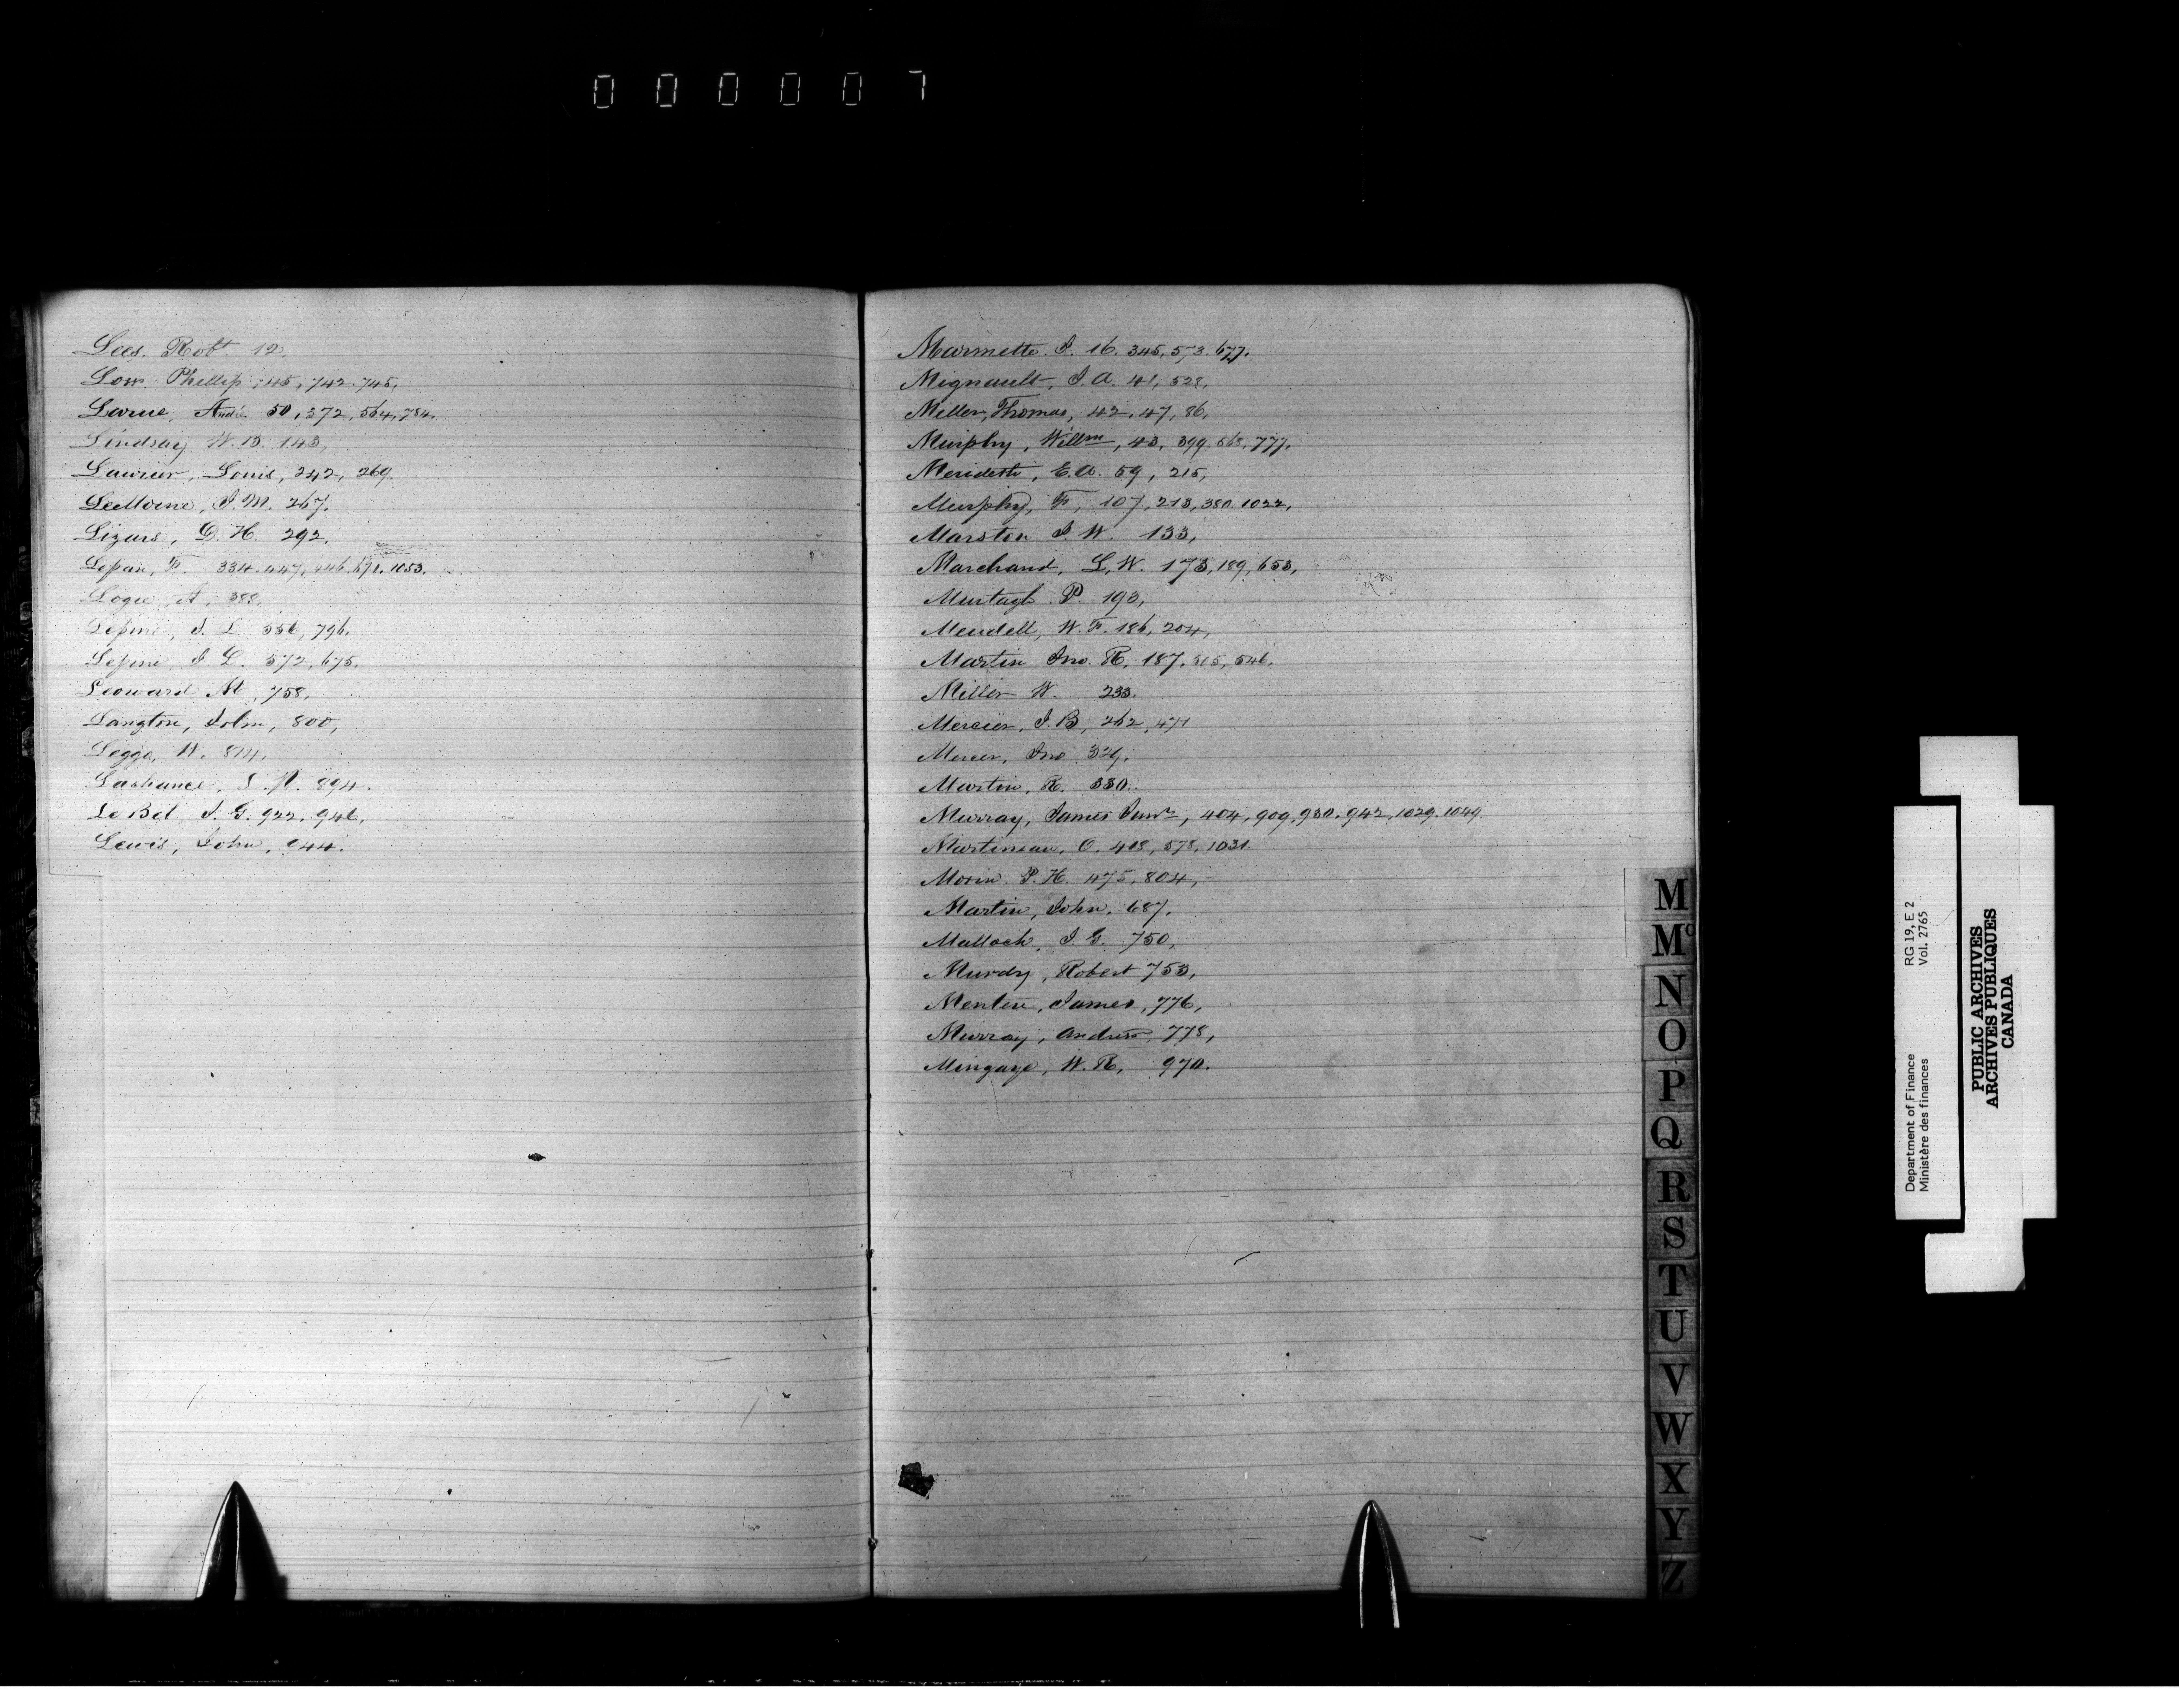 000007
Lees. Robt 12.
Low Phillip, 45, 742, 745,
Larue, André 50, 372, 564, 784.
Lindsay W. B. 143,
Laurier, Louis, 242, 269.
LeMoine, J. M. 267.
Lizars, D. H. 292.
Lepan, F. 334. 447, 446. 571. 1053.
Logie, A, 388,
Lepine, J. L. 556, 796.
Lepine J L. 572, 675.
Leonard M, 758,
Langton, John, 800,
Leggo, W. 814,
Lachance, 894.
Le Bel J. G. 922, 946,
Lewis, John, 944.
Marmette J. 16. 345, 573. 677.
Mignault, J. A. 41, 528,
Miller, Thomas, 42, 47, 86,
Murphy, Willm, 43, 399. 568. 777.
Meredith, E. A. 59, 215,
Murphy, F, 107, 213, 380. 1022,
Marston J W. 133,
Marchand, L. W. 173, 189, 653,
Murtagh. P. 193,
Mendell, W. F. 186, 204,
Martin Jno. R. 187. 515, 546.
Miller W. 233.
Mercier, J. B, 262, 471
Mercer, Jno 329.
Martin, R. 330.
Murray, James Junr, 404, 909, 930. 942, 1029. 1049.
Martineau, O. 418, 578, 1031.
Morin. P. H. 475, 804,
Martin, John. 687.
Malloch, J. G. 750,
Murdy, Robert 753,
Menlin, James, 776,
Murray, Andrew 778,
Mingaye, W. R, 970.
M
Mc
N
O
P
Q
R
S
T
U
V
W
X
Y
Z
Department of Finance RG 19, E 2
Ministère des finances Vol. 2765
PUBLIC ARCHIVES
ARCHIVES PUBLIQUES
CANADA